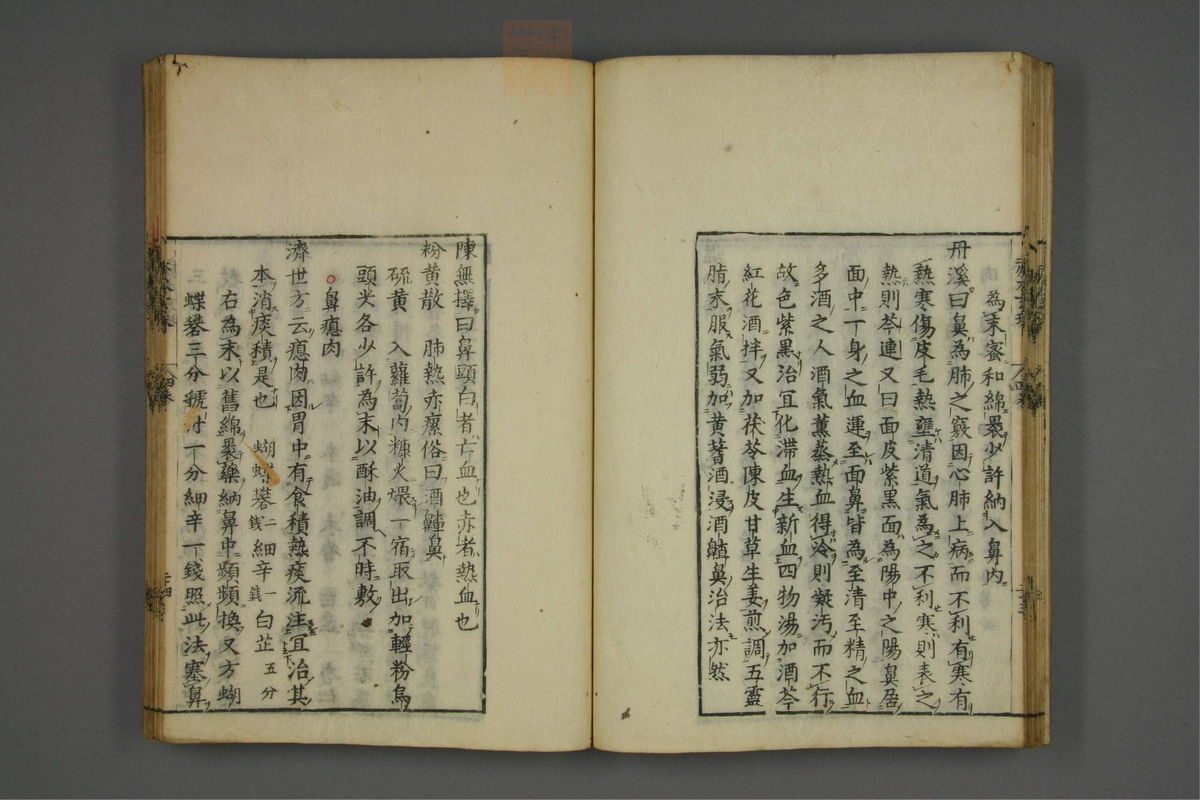 為末蜜和綿裹少許納入鼻内
丹溪曰鼻為肺之竅因心肺上病而不利有寒有
熱寒傷皮毛熱壅清道氣為之不利寒則表之
熱則芩連又曰面皮紫黒面為陽中之陽鼻居
面中一身之血運至面鼻皆為至清至精之血
多酒之人酒氣薫蒸熱血得冷則凝汚而不行
故色紫黒治冝化滞血生新血四物湯加酒芩
紅花酒拌又加茯苓陳皮甘草生姜煎調五靈
脂末服氣弱加黄蓍酒浸酒皶鼻治法亦然
陳無擇曰鼻頭白者亡血也赤者熱血也
粉黄散 肺熱赤瘰俗曰酒皶鼻
硫黄 入蘿蔔内糠火煨一宿取出加輕粉烏
頭尖各少許為末以酥油調不時敷
鼻瘜肉
濟世方云瘜肉因胃中有食積熱痰流注冝治其
本消痰積是也 蝴蝶礬二錢細辛一錢白芷五分
右為末以舊綿裹藥納鼻中頻頻換又方蝴
蝶礬三分 一分細辛一錢照此法塞鼻